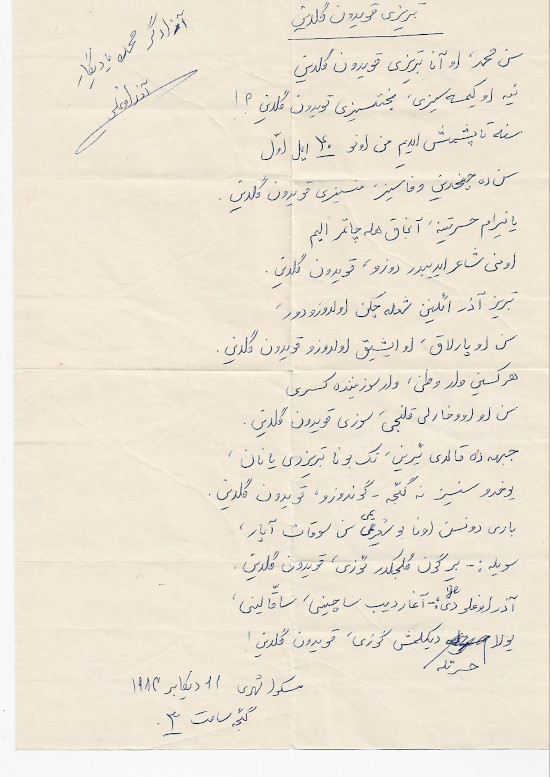 تبریزی قویدون گلدین
آزادگر محمده یادیگار
آذراوغلی
سن محمد، او آنا تبریزی قویدون گلدین
نیه او کیمسه سیزی، بختسیزی قویدون گلدین؟!
سفته تاپشمش ایدیم من اونو ۴۰ ایل اوّل
سن ده چیخدین وفاسیز، منسیزی قویدون گلدین.
یانیرام حسرتینه، آنجاق هله چاتمر الیم
اونی شاعر ایدیبدر دوزو، قویدون گلدین.
تبریز آذر ائلینن شعله چکن اولدوزودور،
سن او پارلاق، او ایشیق اولدوزو قویدون گلدین.
هرکسین وار وطنی، وار سوزینده کسری
سن او اووخارلی قلنجی، سوزی قویدون گلدین.
جبهه ده قالدی یئرین، تک بونا تبریزدی یانان،
یوخدو سنسیز نه گئجه - گوندوزو، قویدون گلدین.
باری دونسن اونا بو شعریمی سن سوقات آپار،
سویله: - بیر گون گلجکدر ئوزی، قویدون گلدین.
آذراوغلو دی یه: - آغاردیب ساچینی، ساقّالینی،
یولا حسرتله دیکلمش گوزی، قویدون گلدین!
مسکوا شهری ۲۱ دیکابر ۱۹۸۴
گئجه ساعت ۳.